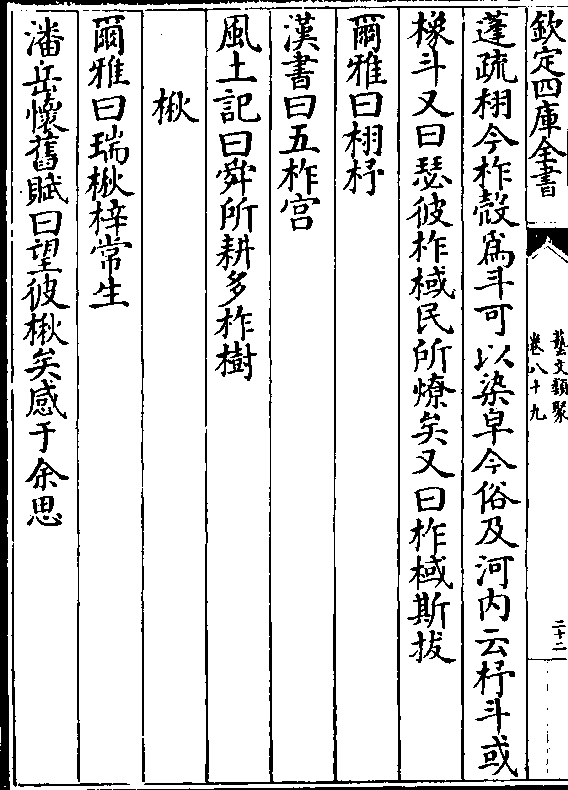 欽定四庫全書
藝文類聚
卷八十九
二十二
蓬疏栩今柞殼為斗可以染皁今俗及河内云杼斗或
橡斗又曰瑟彼柞棫民所燎矣又曰柞棫斯拔
爾雅曰栩杼
漢書曰五柞宫
風土記曰舜所耕多柞樹
楸
爾雅曰瑞楸梓常生
潘岳懷舊賦曰望彼楸矣感于余思